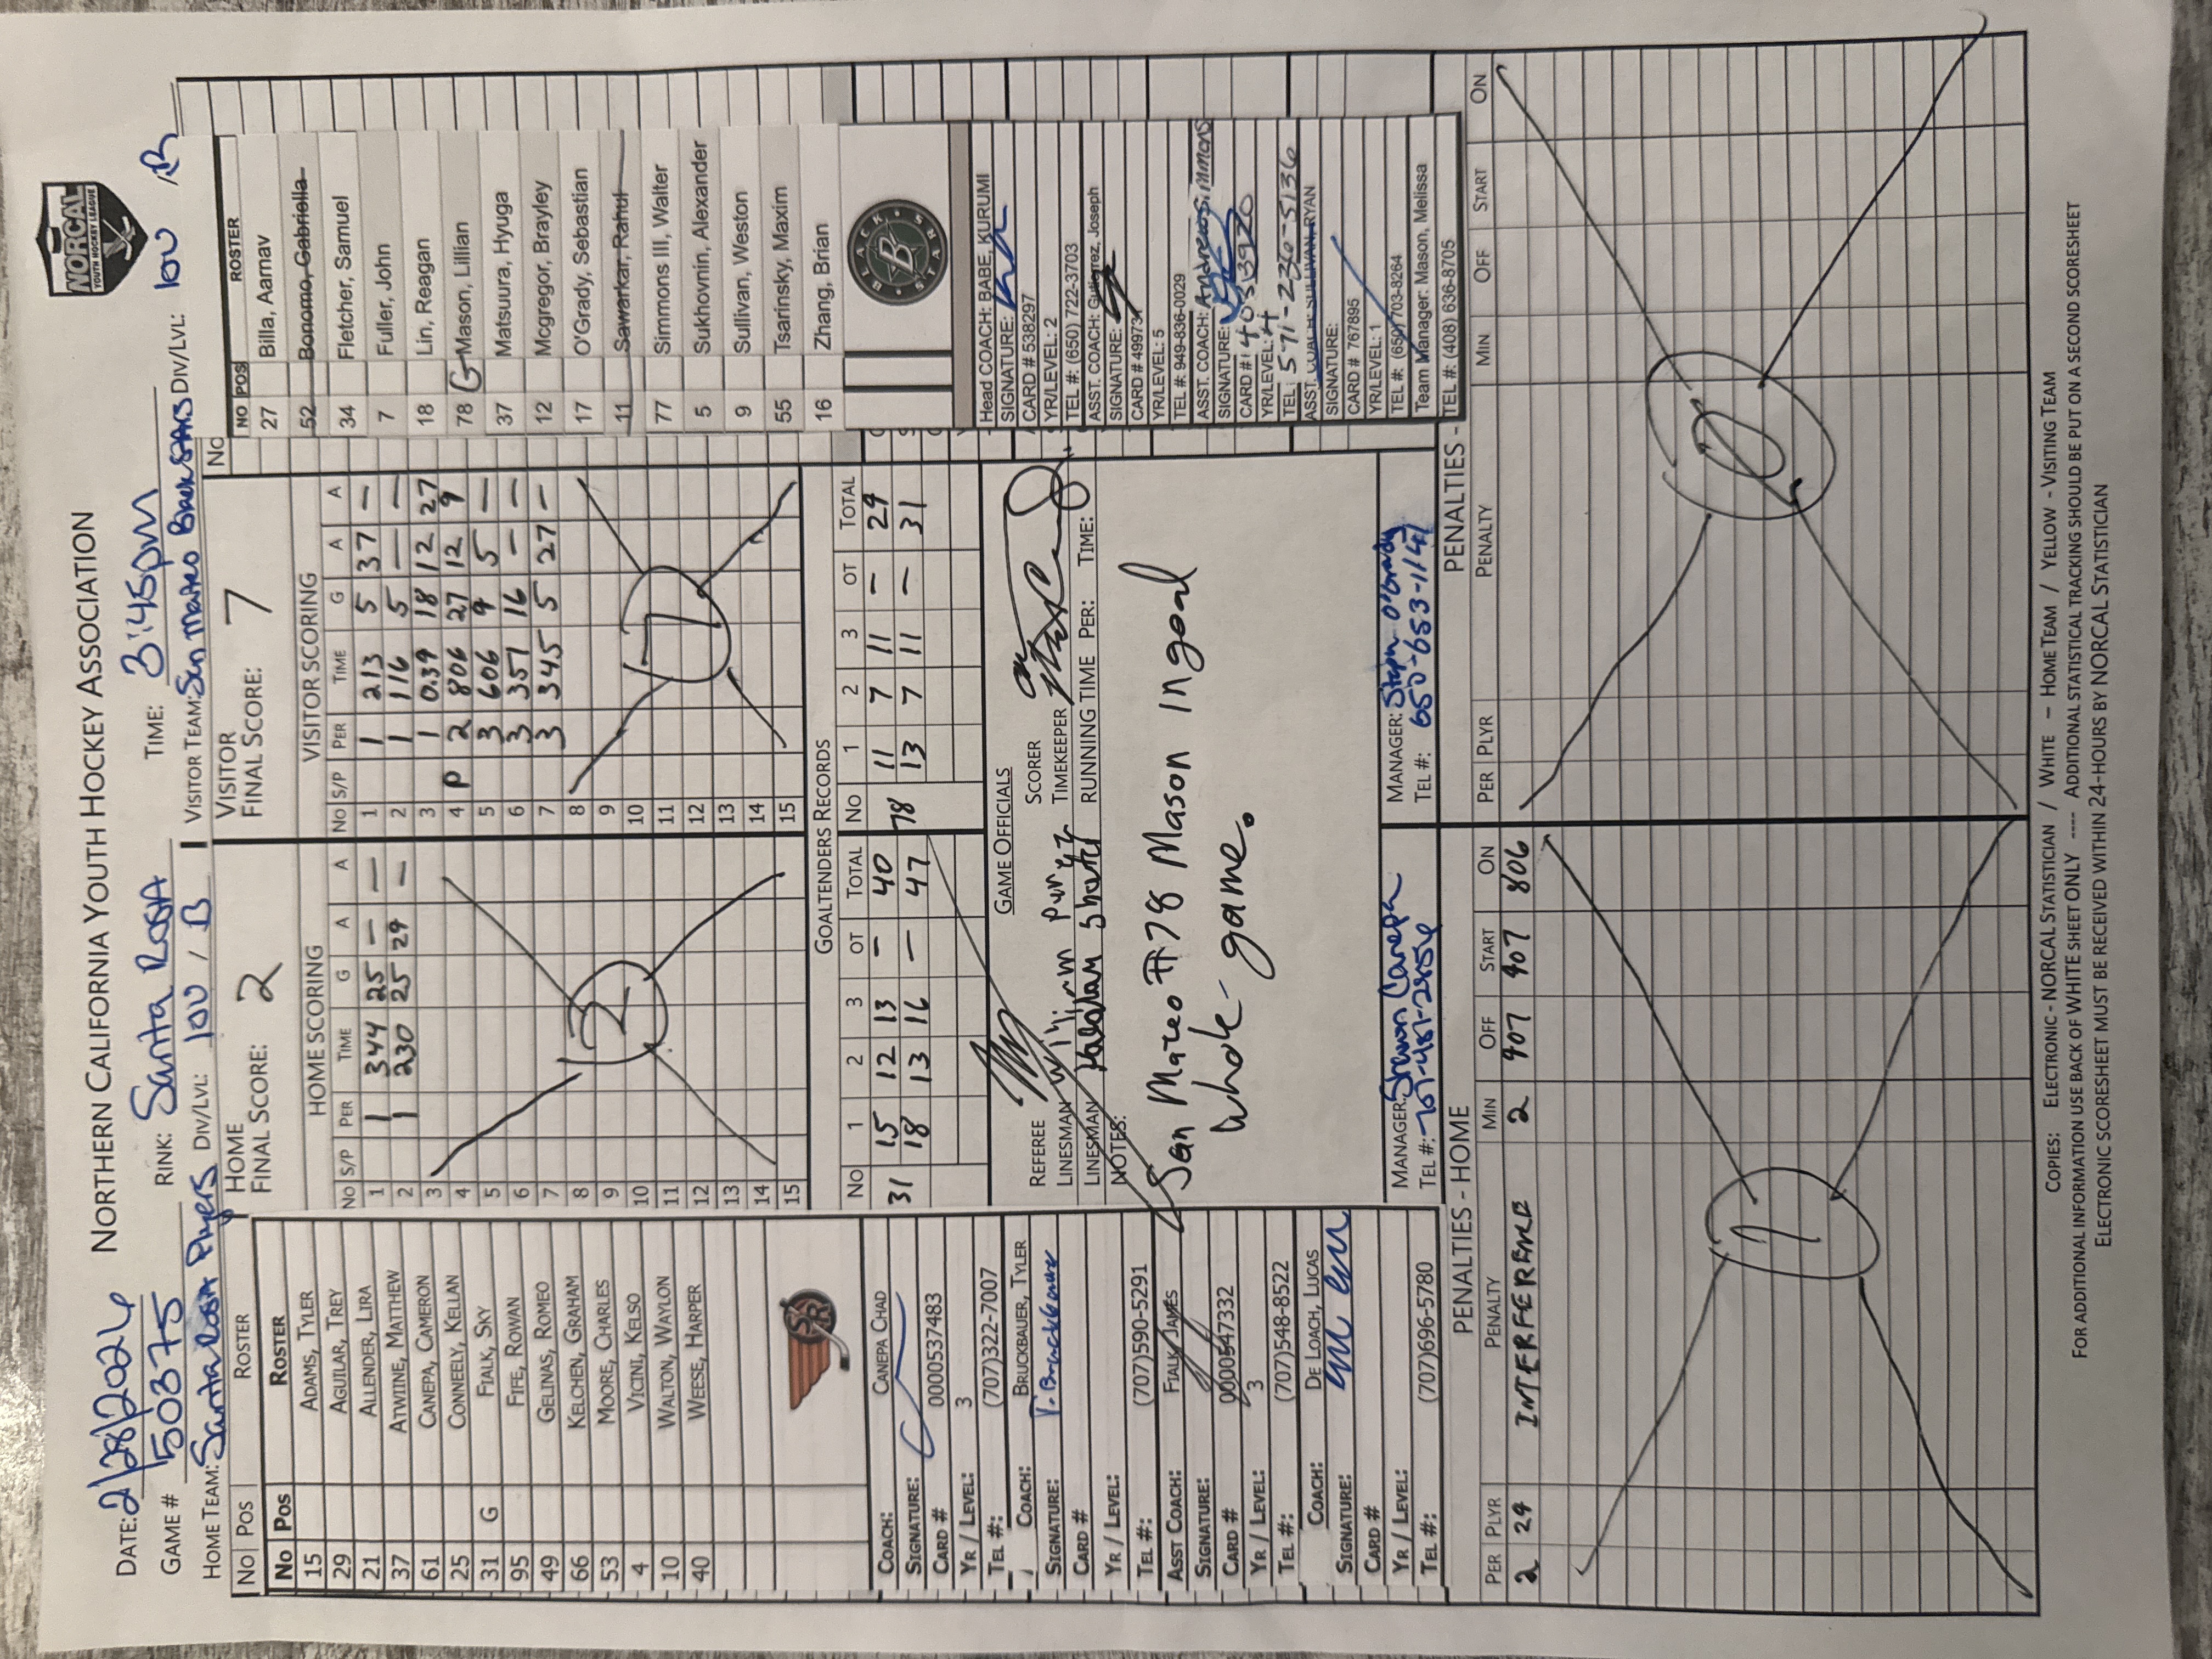 NORTHERN CALIFORNIA YOUTH HOCKEY ASSOCIATION
NORCAL
YOUTH HOCKEY LEAGUE
DATE: 2/28/2026 RINK: Santa Rosa TIME: 3:45pm
GAME # 50375
HOME TEAM: Santa Rosa Flyers DIV/LVL: 10U / B VISITOR TEAM: San Mateo Blackstars DIV/LVL: 10U B
HOME
FINAL SCORE: 2
VISITOR
FINAL SCORE: 7
No Pos ROSTER
No Pos ROSTER
15 ADAMS, TYLER
29 AGUILAR, TREY
21 ALLENDER, LIRA
37 ATWINE, MATTHEW
61 CANEPA, CAMERON
25 CONNEELY, KELLAN
31 G FIALK, SKY
95 FIFE, ROWAN
49 GELINAS, ROMEO
66 KELCHEN, GRAHAM
53 MOORE, CHARLES
4 VICINI, KELSO
10 WALTON, WAYLON
40 WEESE, HARPER
SR
COACH: CANEPA CHAD
SIGNATURE:
CARD # 0000537483
YR / LEVEL: 3
TEL #: (707)322-7007
COACH: BRUCKBAUER, TYLER
SIGNATURE: T. Bruckbauer
CARD #
YR / LEVEL:
TEL #: (707)590-5291
ASST COACH: FIALK JAMES
SIGNATURE:
CARD # 0000547332
YR / LEVEL: 3
TEL #: (707)548-8522
COACH: DE LOACH, LUCAS
SIGNATURE:
CARD #
YR / LEVEL:
TEL #: (707)696-5780
HOME SCORING
No S/P PER TIME G A A
1 1 344 25 — —
2 1 230 25 29 —
3
4
5
6
7
8
9
10
11
12
13
14
15
2
VISITOR SCORING
No S/P PER TIME G A A
1 1 213 5 37 —
2 1 116 5 — —
3 1 0.39 18 12 27
4 P 2 806 27 12 9
5 3 606 9 5 —
6 3 351 16 — —
7 3 345 5 27 —
8
9
10
11
12
13
14
15
7
GOALTENDERS RECORDS
No 1 2 3 OT TOTAL No 1 2 3 OT TOTAL
31 15 12 13 — 40 78 11 7 11 — 29
18 13 16 — 47 13 7 11 — 31
GAME OFFICIALS
REFEREE SCORER
LINESMAN TIMEKEEPER
LINESMAN RUNNING TIME PER: TIME:
NOTES:
San Mateo #78 Mason In goal
whole game.
MANAGER: Shawn Canepa
TEL #: 707-487-2854
MANAGER: Steph O'Grady
TEL #: 650-653-1141
No
NO POS ROSTER
27 Billa, Aarnav
52 Bonomo, Gabriella
34 Fletcher, Samuel
7 Fuller, John
18 Lin, Reagan
78 G Mason, Lillian
37 Matsuura, Hyuga
12 Mcgregor, Brayley
17 O'Grady, Sebastian
11 Sawarkar, Rahul
77 Simmons III, Walter
5 Sukhovnin, Alexander
9 Sullivan, Weston
55 Tsarinsky, Maxim
16 Zhang, Brian
BLACK STARS
B
Head COACH: BABE, KURUMI
SIGNATURE:
CARD # 538297
YR/LEVEL: 2
TEL #: (650) 722-3703
ASST. COACH: Gutierrez, Joseph
SIGNATURE:
CARD# 499731
YR/LEVEL: 5
TEL #: 949-836-0029
ASST. COACH: Andrew Simmons
SIGNATURE:
CARD #
YR/LEVEL: 4
TEL: 571-230-5136
ASST. COACH: SULLIVAN, RYAN
SIGNATURE:
CARD # 767895
YR/LEVEL: 1
TEL #: (650)703-8264
Team Manager: Mason, Melissa
TEL #: (408) 636-8705
PENALTIES - HOME
PER PLYR PENALTY MIN OFF START ON
2 29 INTERFERENCE 2 907 907 806
1
PENALTIES -
PER PLYR PENALTY MIN OFF START ON
0
COPIES: ELECTRONIC - NORCAL STATISTICIAN / WHITE – HOME TEAM / YELLOW - VISITING TEAM
FOR ADDITIONAL INFORMATION USE BACK OF WHITE SHEET ONLY ---- ADDITIONAL STATISTICAL TRACKING SHOULD BE PUT ON A SECOND SCORESHEET
ELECTRONIC SCORESHEET MUST BE RECEIVED WITHIN 24-HOURS BY NORCAL STATISTICIAN